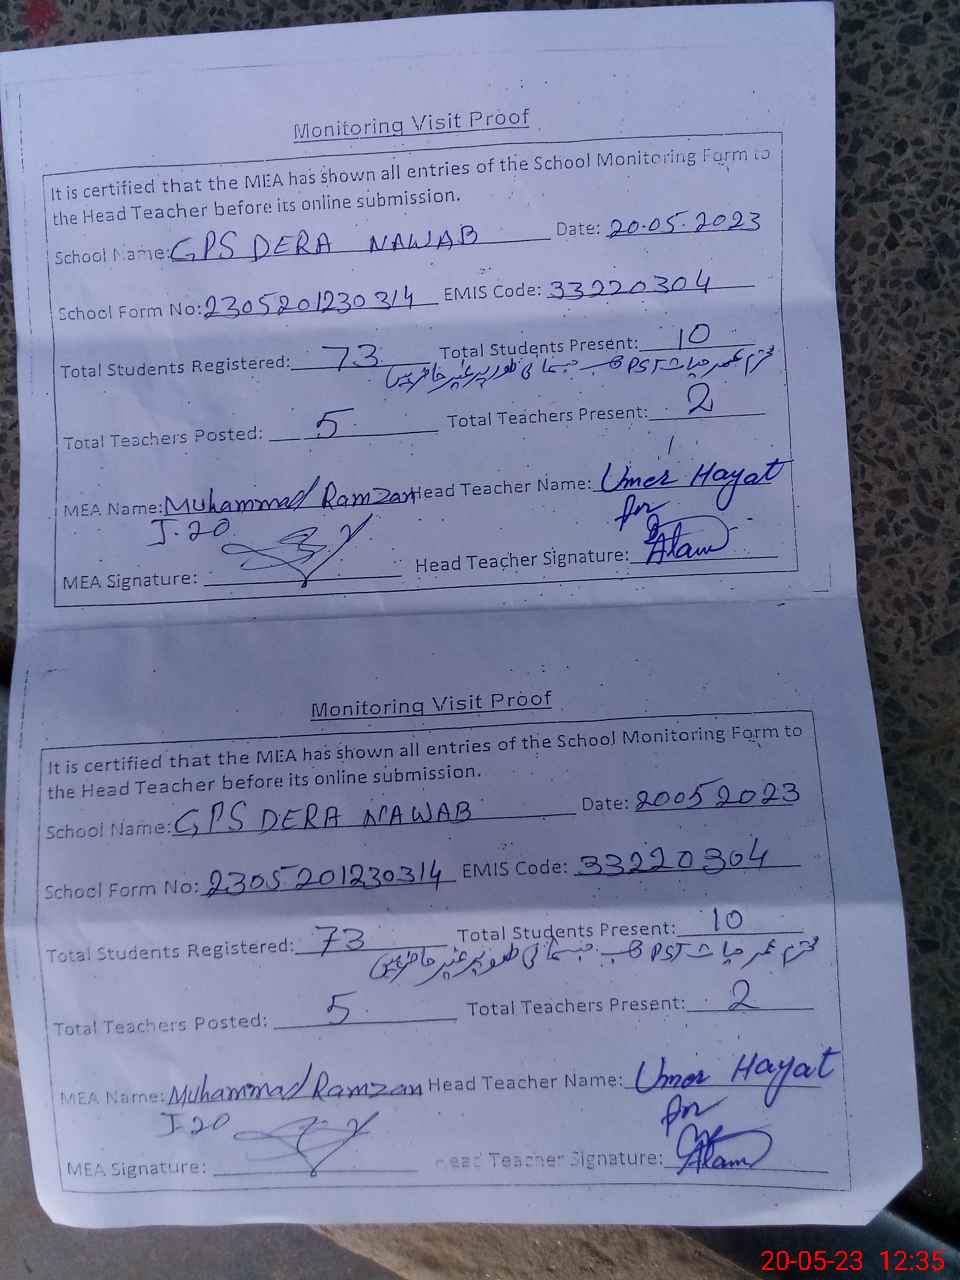 Monitoring Visit Proof
It is certified that the MEA has shown all entries of the School Monitoring Form to
the Head Teacher before its online submission.
School Name: GPS DERA NAWAB Date: 20.05.2023
School Form No: 2305201230314 EMIS Code: 33220304
Total Students Registered: 73 Total Students Present: 10
محترم عمر حیات PST صاحب جسمانی طور پر غیر حاضر ہیں
Total Teachers Posted: 5 Total Teachers Present: 2
MEA Name: Muhammad Ramzan Head Teacher Name: Umer Hayat
J.20 for
MEA Signature: Head Teacher Signature: Alam
Monitoring Visit Proof
It is certified that the MEA has shown all entries of the School Monitoring Form to
the Head Teacher before its online submission.
School Name: GPS DERA NAWAB Date: 20052023
School Form No: 2305201230314 EMIS Code: 33220304
Total Students Registered: 73 Total Students Present: 10
محترم عمر حیات PST صاحب جسمانی طور پر غیر حاضر ہیں
Total Teachers Posted: 5 Total Teachers Present: 2
MEA Name: Muhammad Ramzan Head Teacher Name: Umer Hayat
J.20 for
MEA Signature: Head Teacher Signature: Alam
20-05-23 12:35